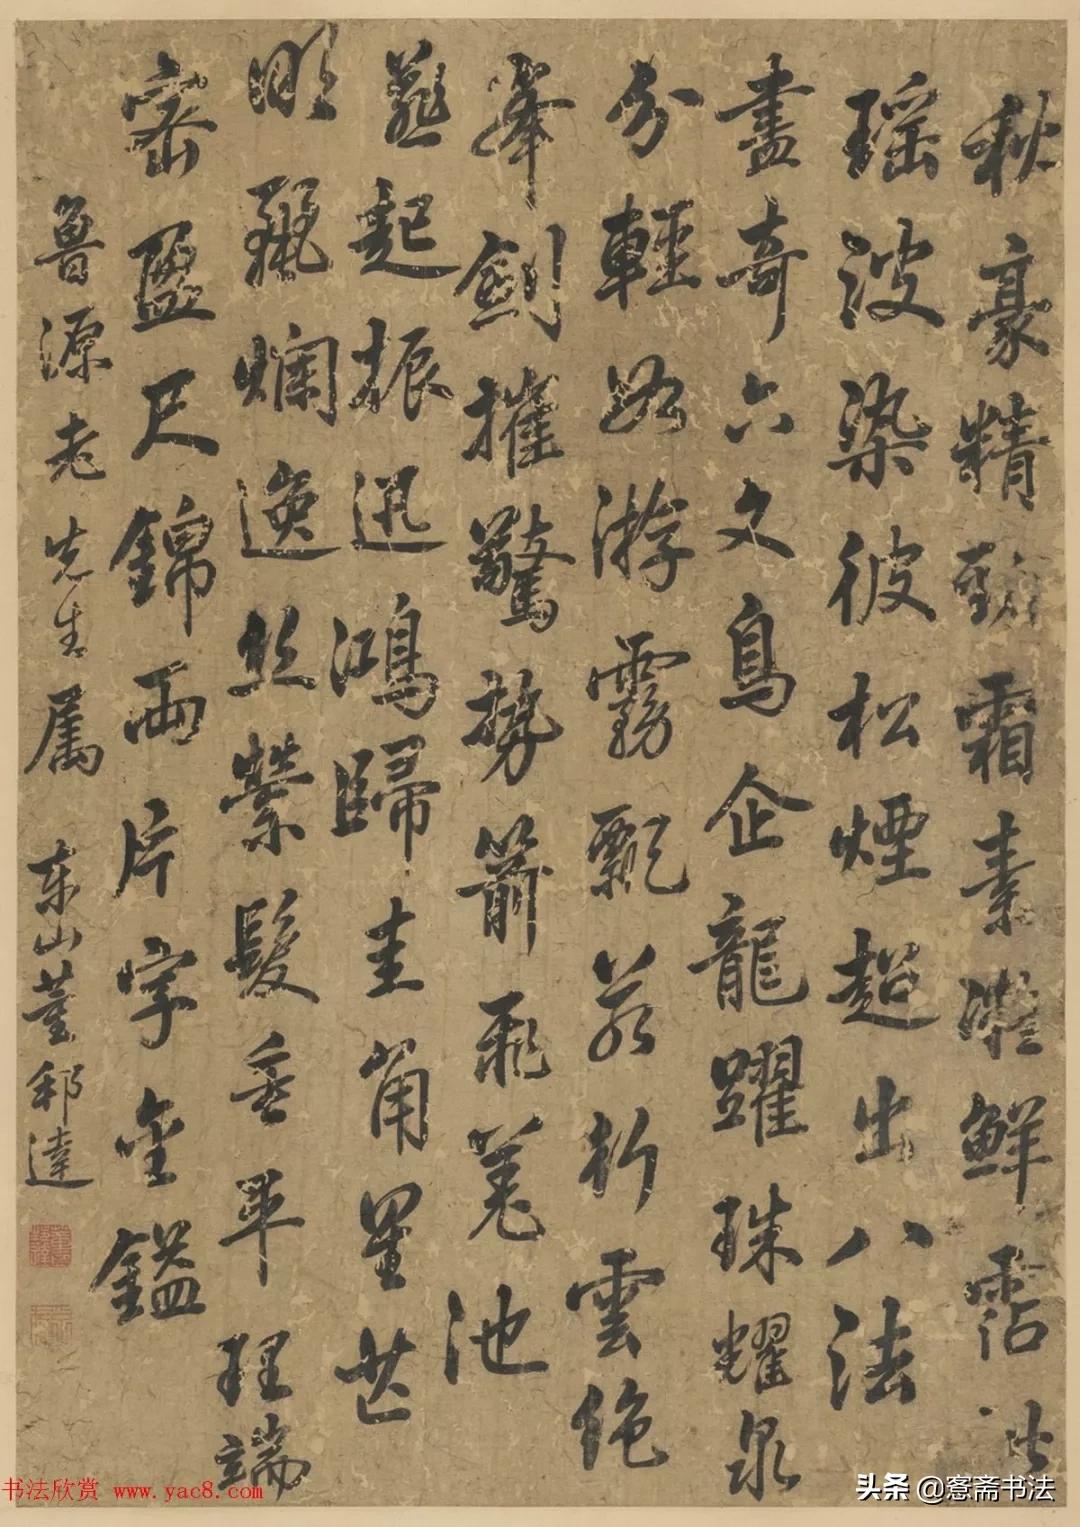 秋豪精勁霜素凝鮮霑此
瑶波染彼松煙超出八法
盡奇六文鳥企龍躍珠耀泉
分輕如游霧飄若行雲絶
峯劍摧驚勢箭飛差池
燕起振迅鴻歸圭角星芒
明麗爛逸絲縈髮垂平理端
密盈尺錦兩片字金鎰
魯源老先生属 東山董邦達
书法欣赏 www.yac8.com
头条 @愙斋书法